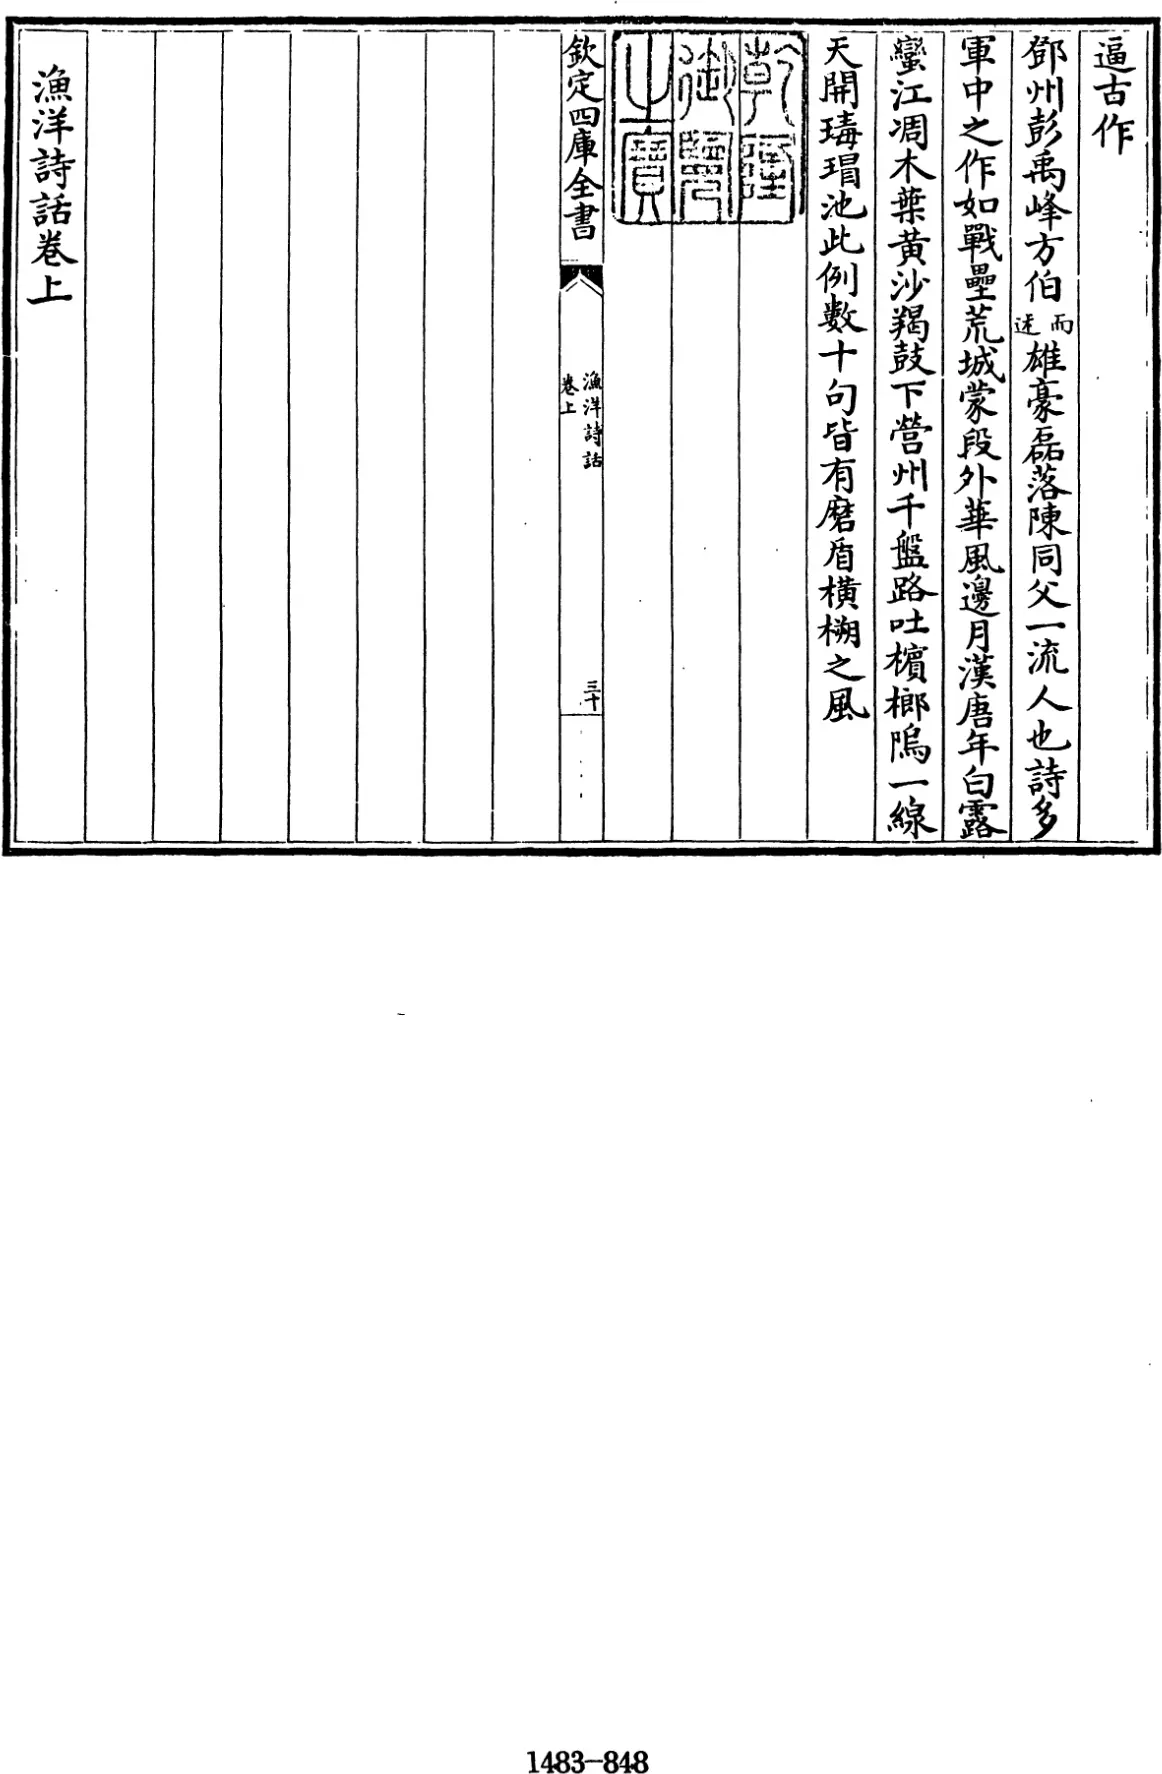 逼古作
鄧州彭禹峰方伯而述雄豪磊落陳同父一流人也詩多
軍中之作如戰壘荒城蒙段外華風邊月漢唐年白露
蠻江凋木葉黄沙羯鼓下營州千盤路吐檳榔隖一線
天開瑇瑁池此例數十句皆有磨盾橫槊之風
乾隆
御覽
之寶
欽定四庫全書
漁洋詩話
卷上
三十
漁洋詩話卷上
1483-848